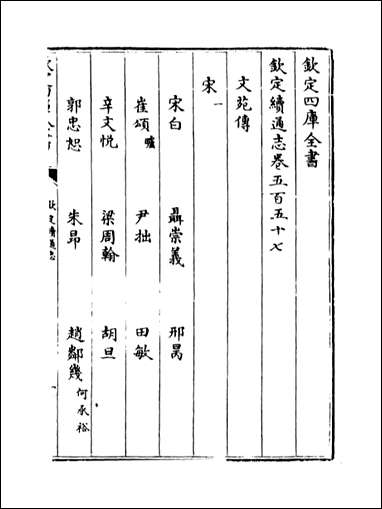 欽定四庫全書
欽定續通志卷五百五十七
文苑傳
宋一
宋白 聶崇義 邢昺
崔頌 曮 尹拙 田敏
辛文悦 梁周翰 胡旦
郭忠恕 朱昂 趙鄰幾 何承裕
欽定續通志